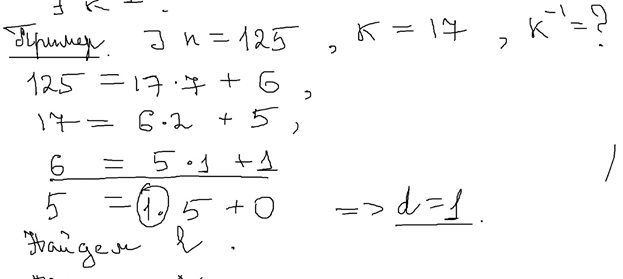 Пример. ] n = 125 , k = 17 , k⁻¹ = ?
125 = 17·7 + 6 ,
17 = 6·2 + 5 ,
6 = 5·1 + 1
5 = 1·5 + 0 => d = 1 .
Найдем .